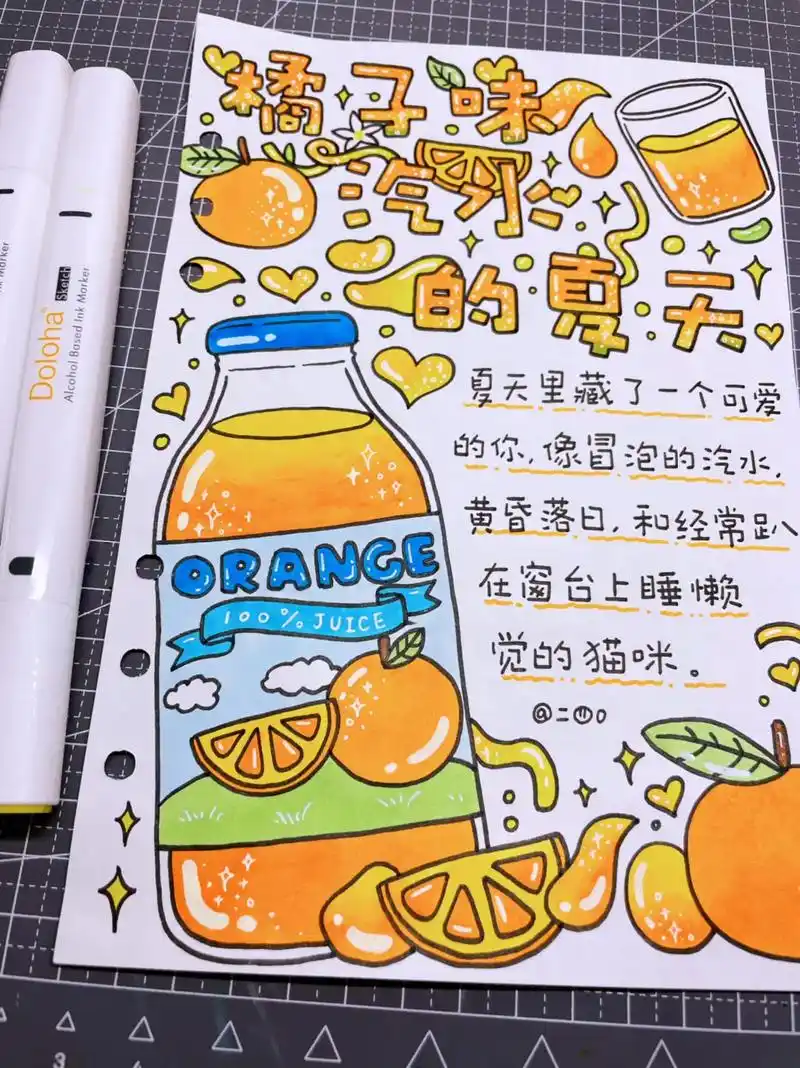 橘子味
汽水
的夏天
夏天里藏了一个可爱
的你,像冒泡的汽水,
黄昏落日,和经常趴
在窗台上睡懒
觉的猫咪。
ORANGE
100% JUICE
Doloha
Sketch
Alcohol Based Ink Marker
Marker
3